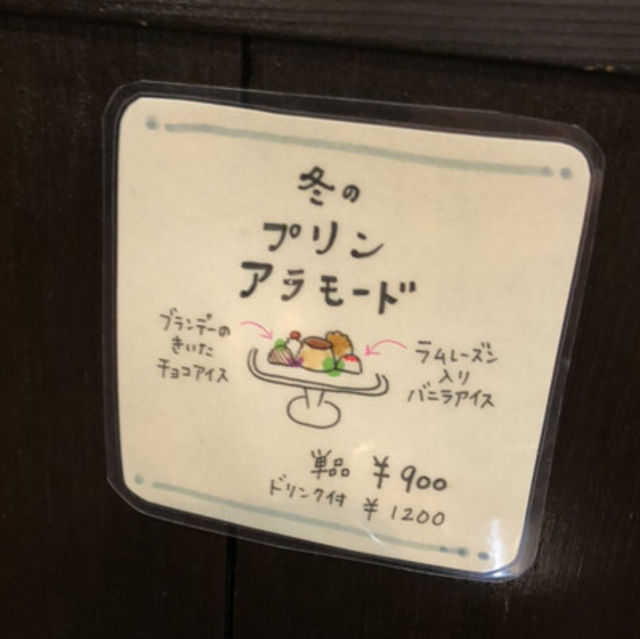 冬の
プリン
アラモード
ブランデーの
きいた
チョコアイス
ラムレーズン
入り
バニラアイス
単品 ¥900
ドリンク付 ¥1200